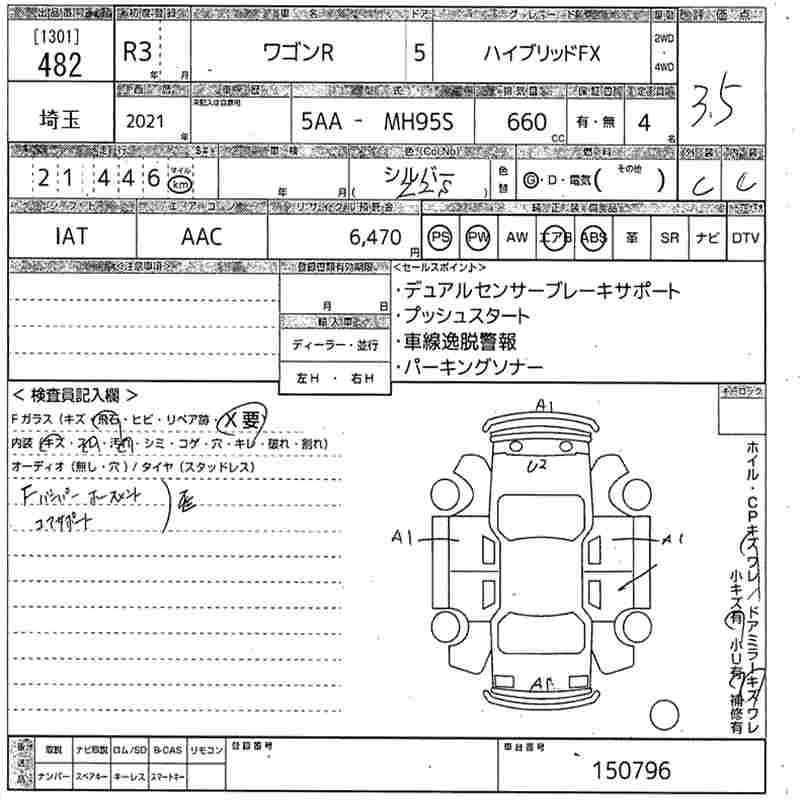 出品番号 初度登録 車名 ドア グレード 車型 評価点
[1301]
482
R3 年 月
ワゴンR
5
ハイブリッドFX
2WD
・
4WD
3.5
埼玉
西暦 車歴 型式 排気量 保証書 定員
未記入は自家用
2021 年
5AA - MH95S
660 CC
有・無
4 名
走行 車検 色(Col.No) 燃料 外装 内装
21,446 マイル km
年 月
シルバー
ZZS
色替
G・D・電気( その他 )
C C
シフト エアコン リサイクル預託金 純正装備品
IAT AAC 6,470 円
PS PW AW エアB ABS 革 SR ナビ DTV
注意事項
登録書類有効期限
月 日
輸入車
ディーラー・並行
左H・右H
<セールスポイント>
・デュアルセンサーブレーキサポート
・プッシュスタート
・車線逸脱警報
・パーキングソナー
< 検査員記入欄 >
Fガラス(キズ・飛石・ヒビ・リペア跡・X要)
内装(キズ・スリ・汚れ・シミ・コゲ・穴・キレ・破れ・割れ)
オーディオ(無し・穴)/タイヤ(スタッドレス)
Fバンパー ホースメント
コアサポート
A1
U2
A1
A1
A1
ホイル・CPキズワレ/ドアミラーキズワレ
小キズ有 小U有 補修有
取説 ナビ取説 ロム/SD B-CAS リモコン
ナンバー スペアキー キーレス スマートキー
登録番号
車台番号
150796